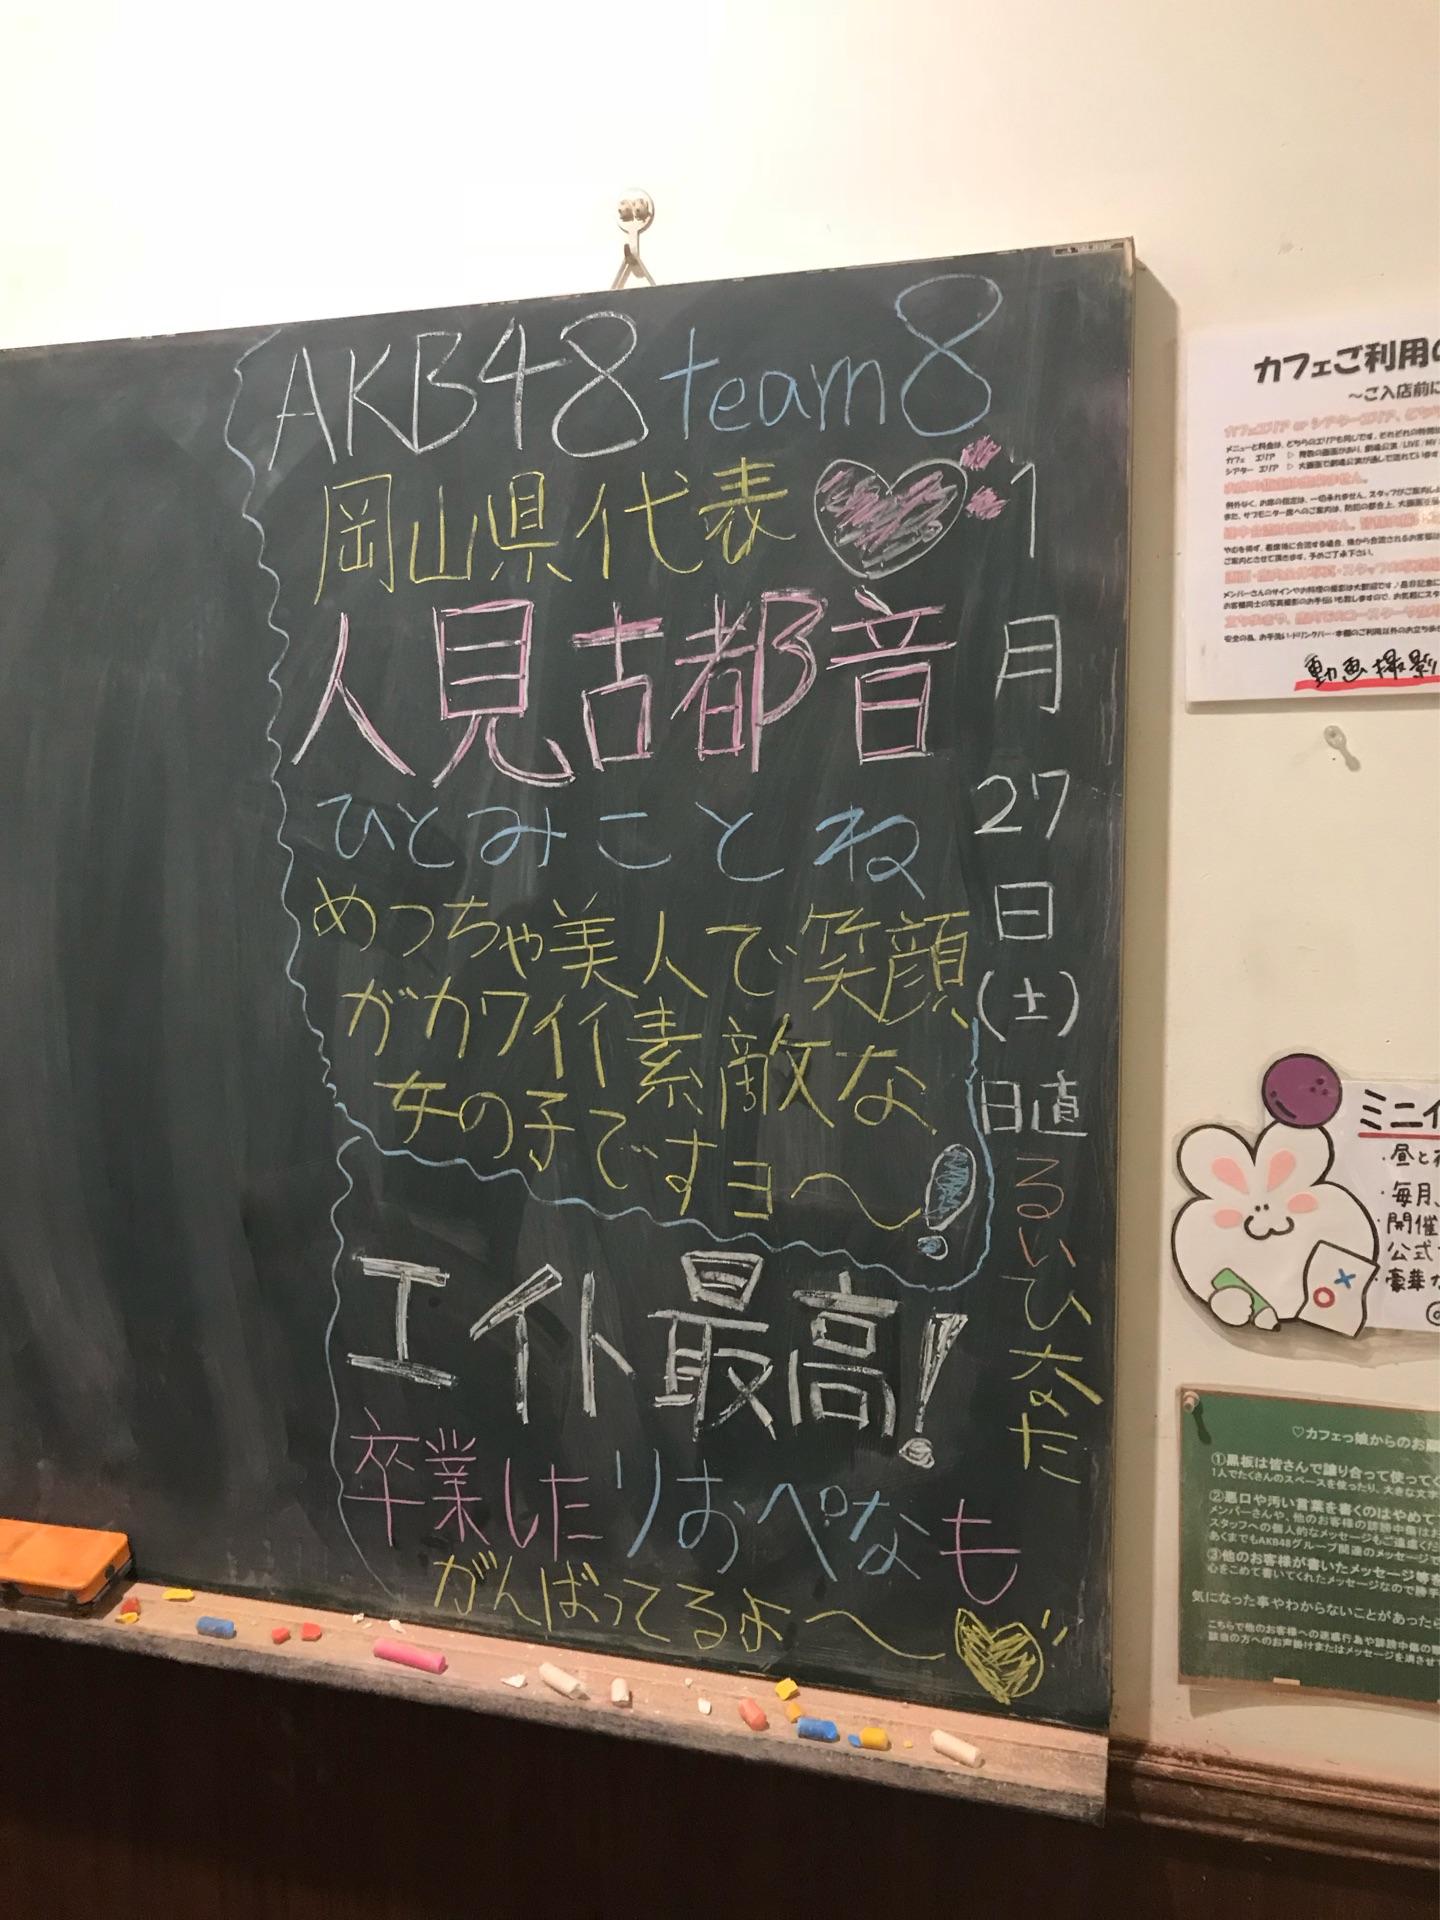 AKB48 team8
岡山県代表
人見古都音
ひとみことね
めっちゃ美人で笑顔
がカワイイ素敵な
女の子ですヨ〜!
エイト最高!
卒業したりおぺなも
がんばってるよ〜
1月27日(土)日直るいひなた
カフェご利用の
〜ご入店前に
動画撮影
ミニイ
・昼と
・毎月、
・開催
公式
・豪華
♡カフェっ娘からのお願
①黒板は皆さんで譲り合って使ってく
1人でたくさんのスペースを使ったり、大きな文字
②悪口や汚い言葉を書くのはやめて
メンバーさんや、他のお客様の誹謗中傷はお
スタッフへの個人的なメッセージもご遠慮くだ
あくまでもAKB48グループ関連のメッセージで
③他のお客様が書いたメッセージ等を
心をこめて書いてくれたメッセージなので勝手
気になった事やわからないことがあったら
こちらで他のお客様への迷惑行為や誹謗中傷の
該当の方へのお声掛けまたはメッセージを消させ